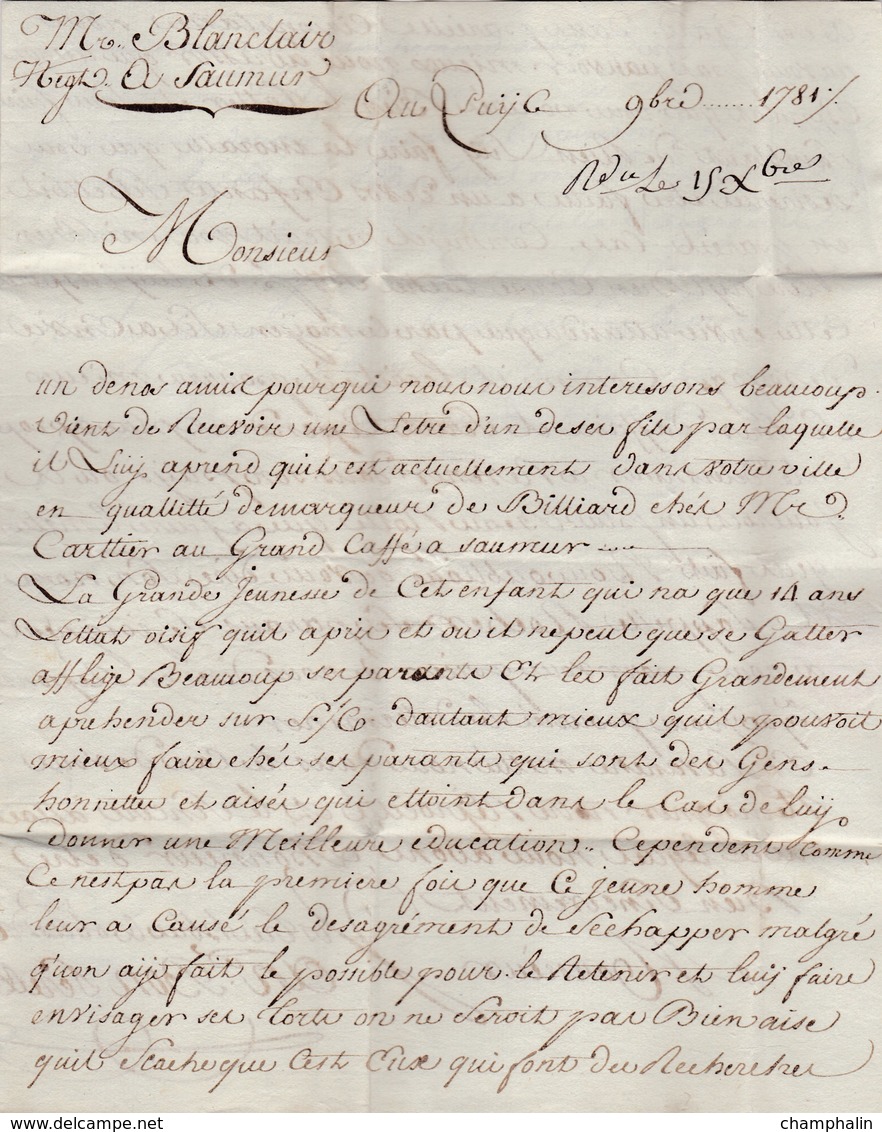 Mr. Blanclair
Negt. A Saumur
Au Puy Ce 9bre ....... 1781 ./.
Rdu Le 15 Xbre
Monsieur
un denos amis pourqui nous nous interessons beaucoup
vient de Recevoir une Letre d'un deses fils par laquelle
il Luy aprend quil est actuellement dans votre ville
en quallitté demarqueur de Billiard chés Mr.
Carttier au Grand Caffé a saumur
La Grande Jeunesse de Cet enfant qui na que 14 ans
Lettat oisif quil a pris et ou il nepeut que se Gatter
afflige Beaucoup ses parants Et les fait Grandement
aprehender sur S/C dautant mieux quil pouvoit
mieux faire chés ses parants qui sont des Gens
honnettes et aisés qui ettoint dans le Cas de luy
donner une Meilleure education .. Cependent comme
Ce nest pas la premiere fois que Ce jeune homme
leur a Causé le desagrément de Séchapper malgré
qu'on aije fait le possible pour le Retenir et luy faire
envisager ses Torts on ne Seroit pas Bien aise
quil Scache que C'est Eux qui font des Recherches
champhalin